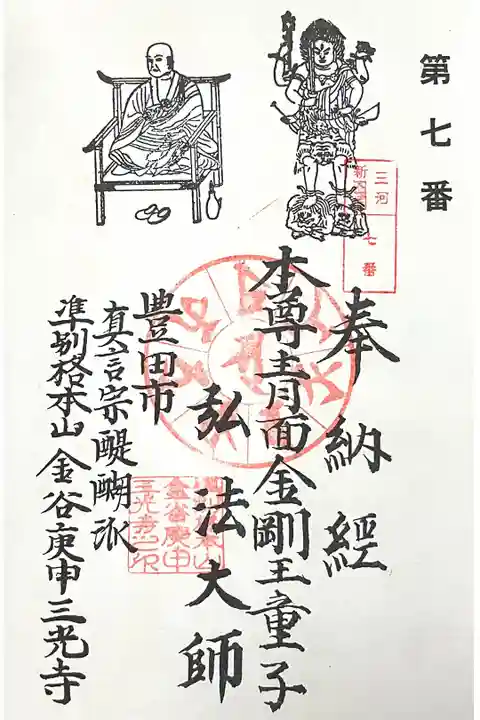 第七番
三河
新四国
七番
奉納経
本尊青面金剛王童子
弘法大師
豊田市
真言宗醍醐派
準別格本山金谷庚申三光寺